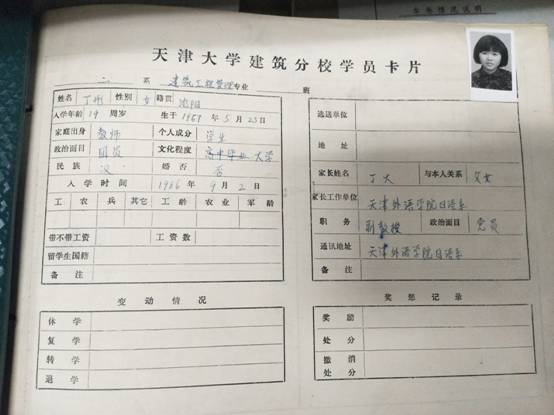 天津大学建筑分校学员卡片
二 系 建筑工程管理 专业 班
姓名 丁 性别 女 籍贯 沈阳
入学年龄 19 周岁 生于 1967 年 5 月 23 日
家庭出身 教师 个人成分 学生
政治面目 团员 文化程度 高中毕业 大学
民族 汉 婚否 否
入学时间 1986 年 9 月 2 日
工 农 兵 其它 工龄 农业 军龄
带不带工资 工资数
留学生国籍
备注
选送单位
地址
家长姓名 丁 与本人关系 父女
家长工作单位 天津外语学院日语系
职务 副教授 政治面目 党员
通讯地址 天津外语学院日语系
备注
变动情况
休学
复学
转学
退学
奖惩记录
奖励
处分
撤消
处分